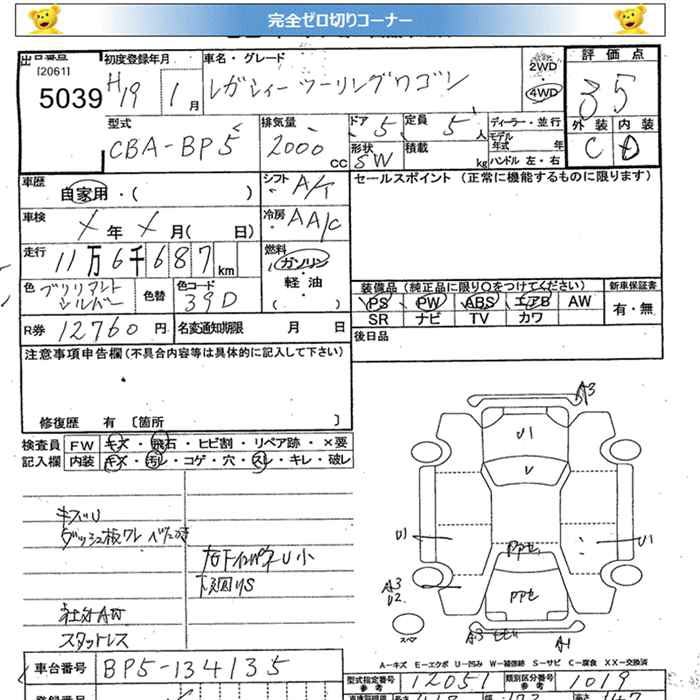 完全ゼロ切りコーナー
[2061]
5039
初度登録年月
H19 1月
車名・グレード
レガシィーツーリングワゴン
2WD
4WD
評価点
3.5
外装 内装
C D
型式
CBA-BP5
排気量
2000 cc
ドア 5
定員 5 人
形状 SW
積載 kg
ディーラー・並行
モデル年式 年
ハンドル 左・右
車歴
自家用・( )
シフト A/T
セールスポイント (正常に機能するものに限ります)
車検
X 年 X 月( 日)
冷房 AA/C
走行
11万6千687km
燃料
ガソリン
軽・油
( )
色 ブリリアントシルバー
色替
色コード 39D
装備品 (純正品に限り○をつけてください)
新車保証書
PS PW ABS エアB AW
SR ナビ TV カワ
有・無
R券 12760 円
名変通知期限 月 日
後日品
注意事項申告欄 (不具合内容等は具体的に記入して下さい)
修復歴 有 〔箇所 〕
検査員記入欄
FW キズ・飛石・ヒビ割・リペア跡・×要
内装 キズ・汚レ・コゲ・穴・スレ・キレ・破レ
キズU
ダッシュ板ワレ ベタつき
右下インパネU小
下廻りS
社外AW
スタットレス
A3
U1
U
U1
U1
PPセ
PPセ
A3
U2
スペア
A3
A1
A-キズ E-エクボ U-凹み W-補修跡 S-サビ C-腐食 XX-交換済
車台番号 BP5-134135
型式指定番号 参考 12051
類別区分番号 参考 1019
登録番号